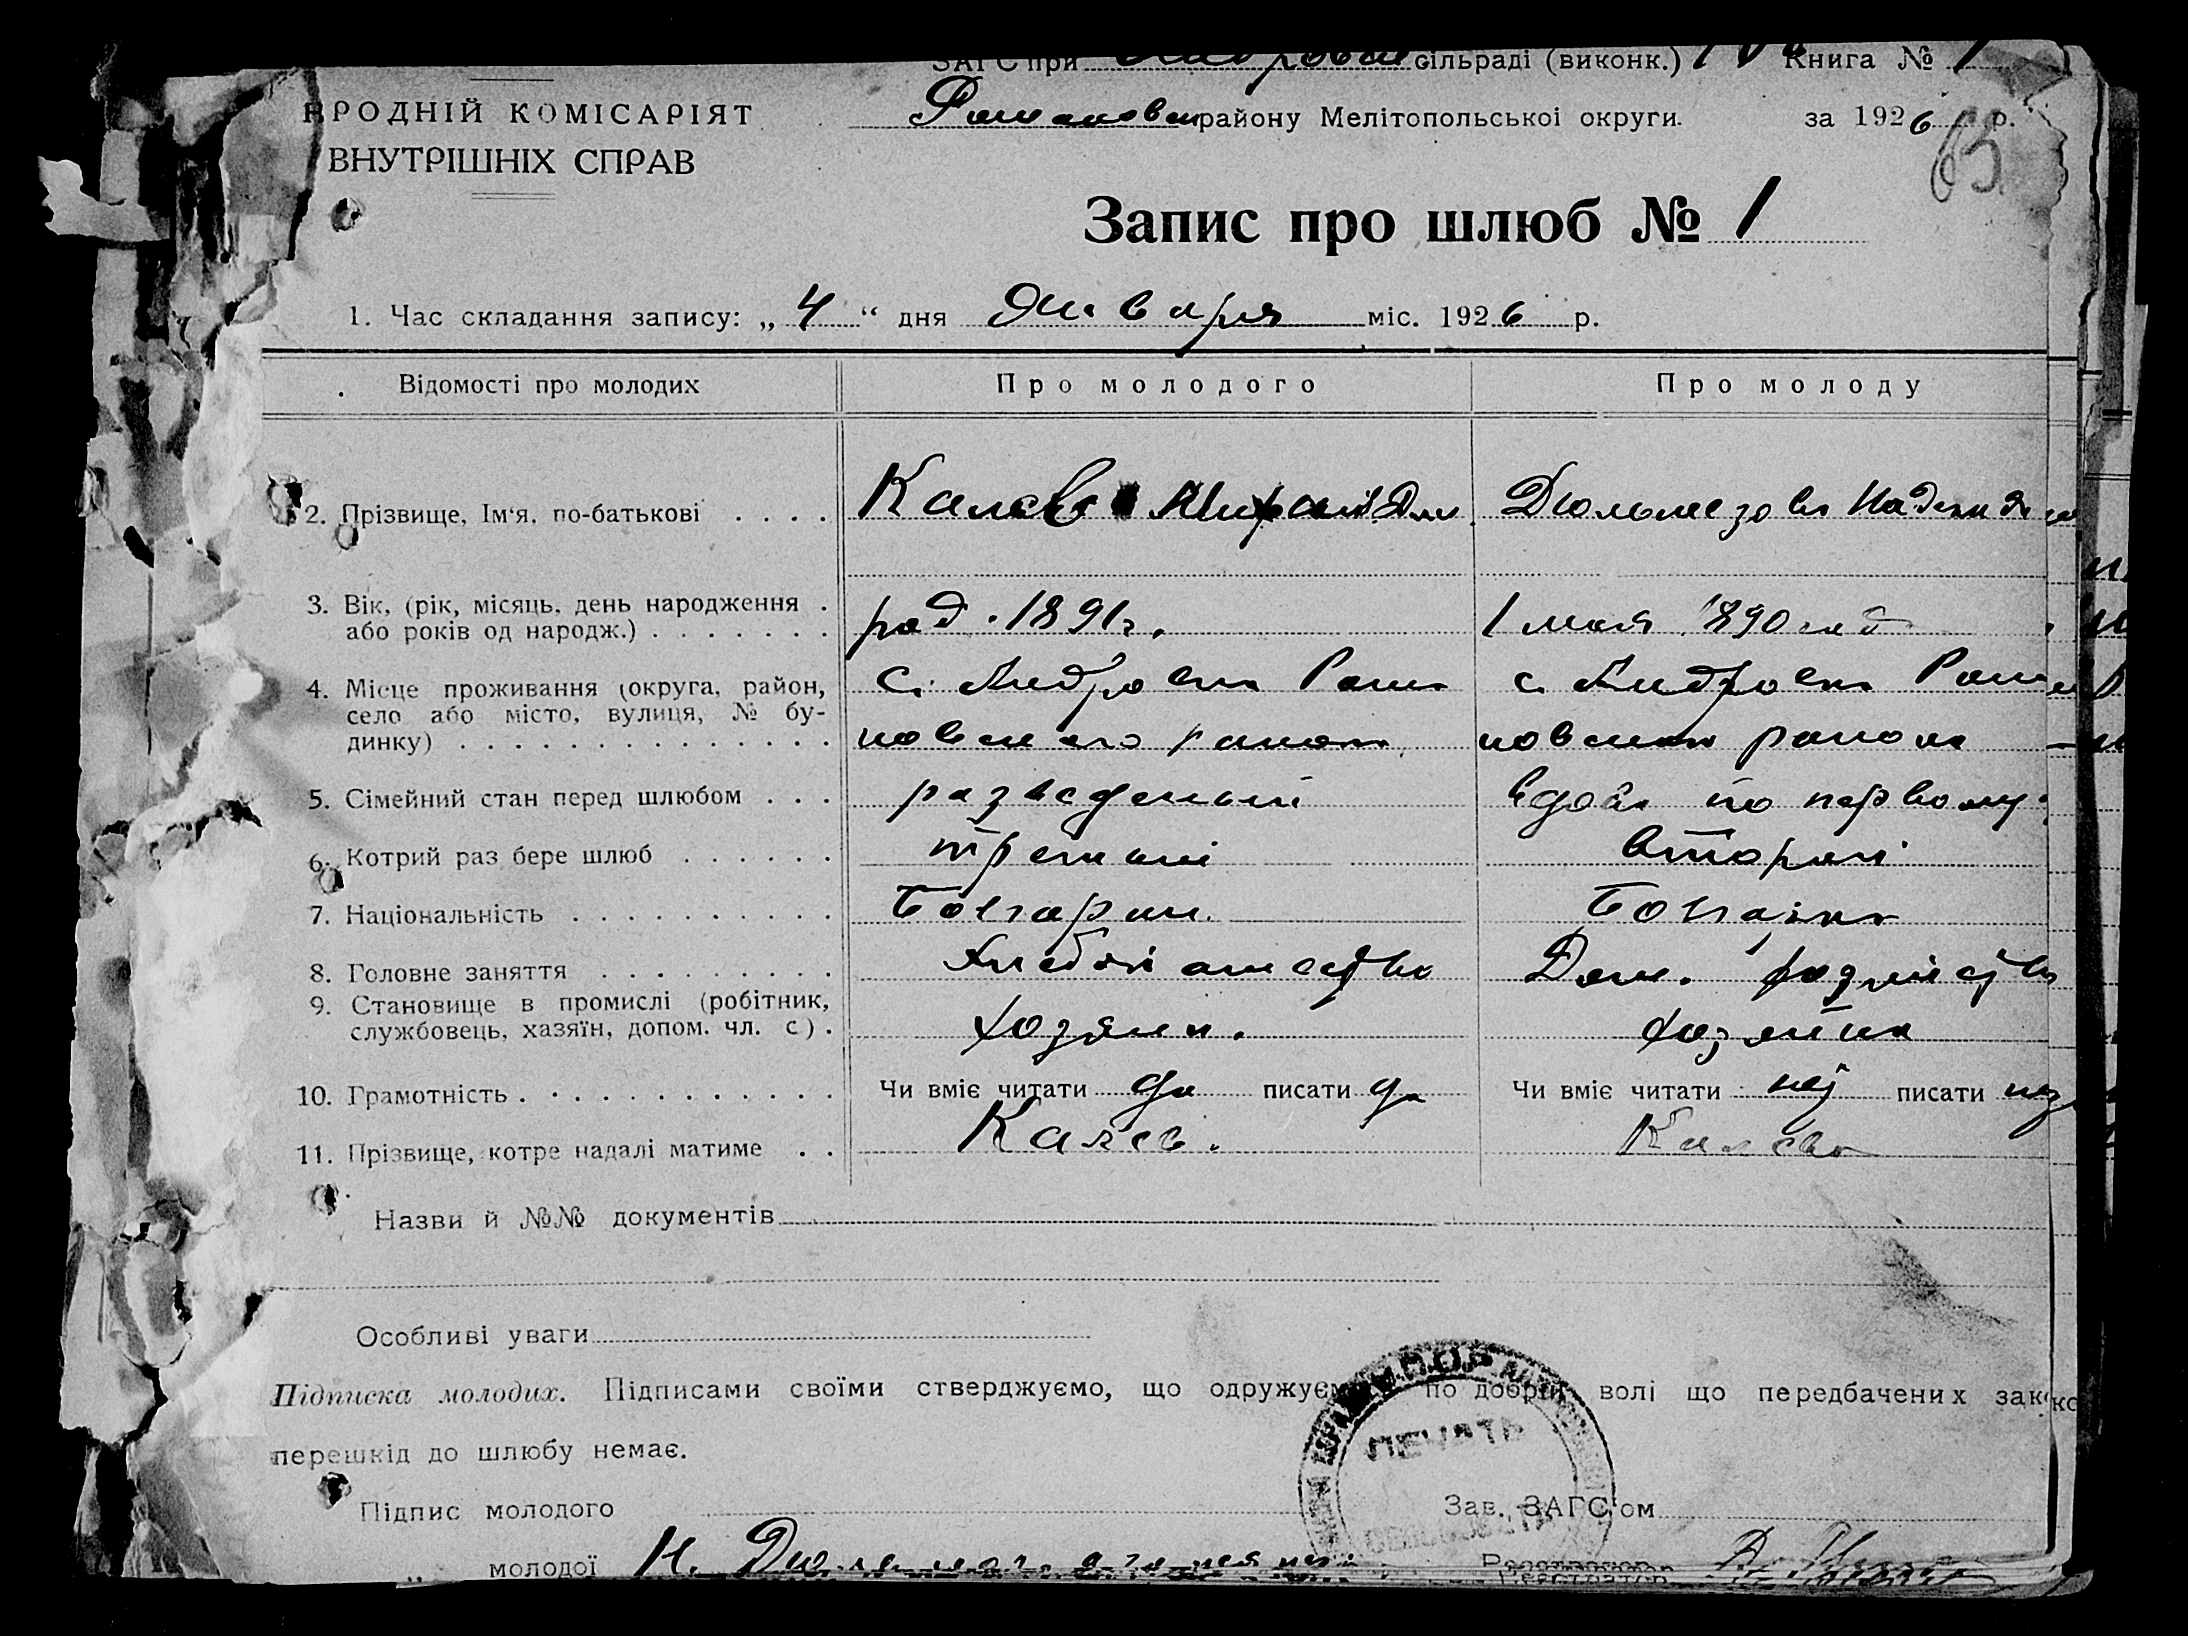 ЗАГС при сільраді (виконк.) Книга № 1
НРОДНІЙ КОМІСАРІЯТ
ВНУТРІШНІХ СПРАВ
Романовск району Мелітопольської округи. за 1926 р.
65
Запис про шлюб № 1
1. Час складання запису: „ 4 “ дня Января міс. 1926 р.
Відомості про молодих Про молодого Про молоду
2. Прізвище, Ім‘я, по-батькові . . . . Калев Дюльмезова Надежда
3. Вік, (рік, місяць, день народження . або років од народж.) . . . . . . . род. 1891 г. 1 мая 1890
4. Місце проживання (округа, район, с. Андровка Рома с. Андровка Рома
село або місто, вулиця, № бу-
динку) . . . . . . . . . . . . . . новского района новского района
5. Сімейний стан перед шлюбом . . . разведеный вдова по первому
6. Котрий раз бере шлюб . . . . . . третий второй
7. Національність . . . . . . . . . . Болгарин. Болгарка
8. Головне заняття . . . . . . . . . Хлебопашество Дом. хозяйство
9. Становище в промислі (робітник,
службовець, хазяїн, допом. чл. с) . хозяин. хозяйка
10. Грамотність . . . . . . . . . . . . Чи вміє читати да писати да Чи вміє читати нет писати нет
11. Прізвище, котре надалі матиме . . Калев. Калева
Назви й №№ документів
Особливі уваги
Підписка молодих. Підписами своїми стверджуємо, що одружуєм по добрій волі що передбачених зак
перешкід до шлюбу немає.
ПЕЧАТЬ
Підпис молодого Зав. ЗАГС‘ом
„ молодої Н. Реєстратор